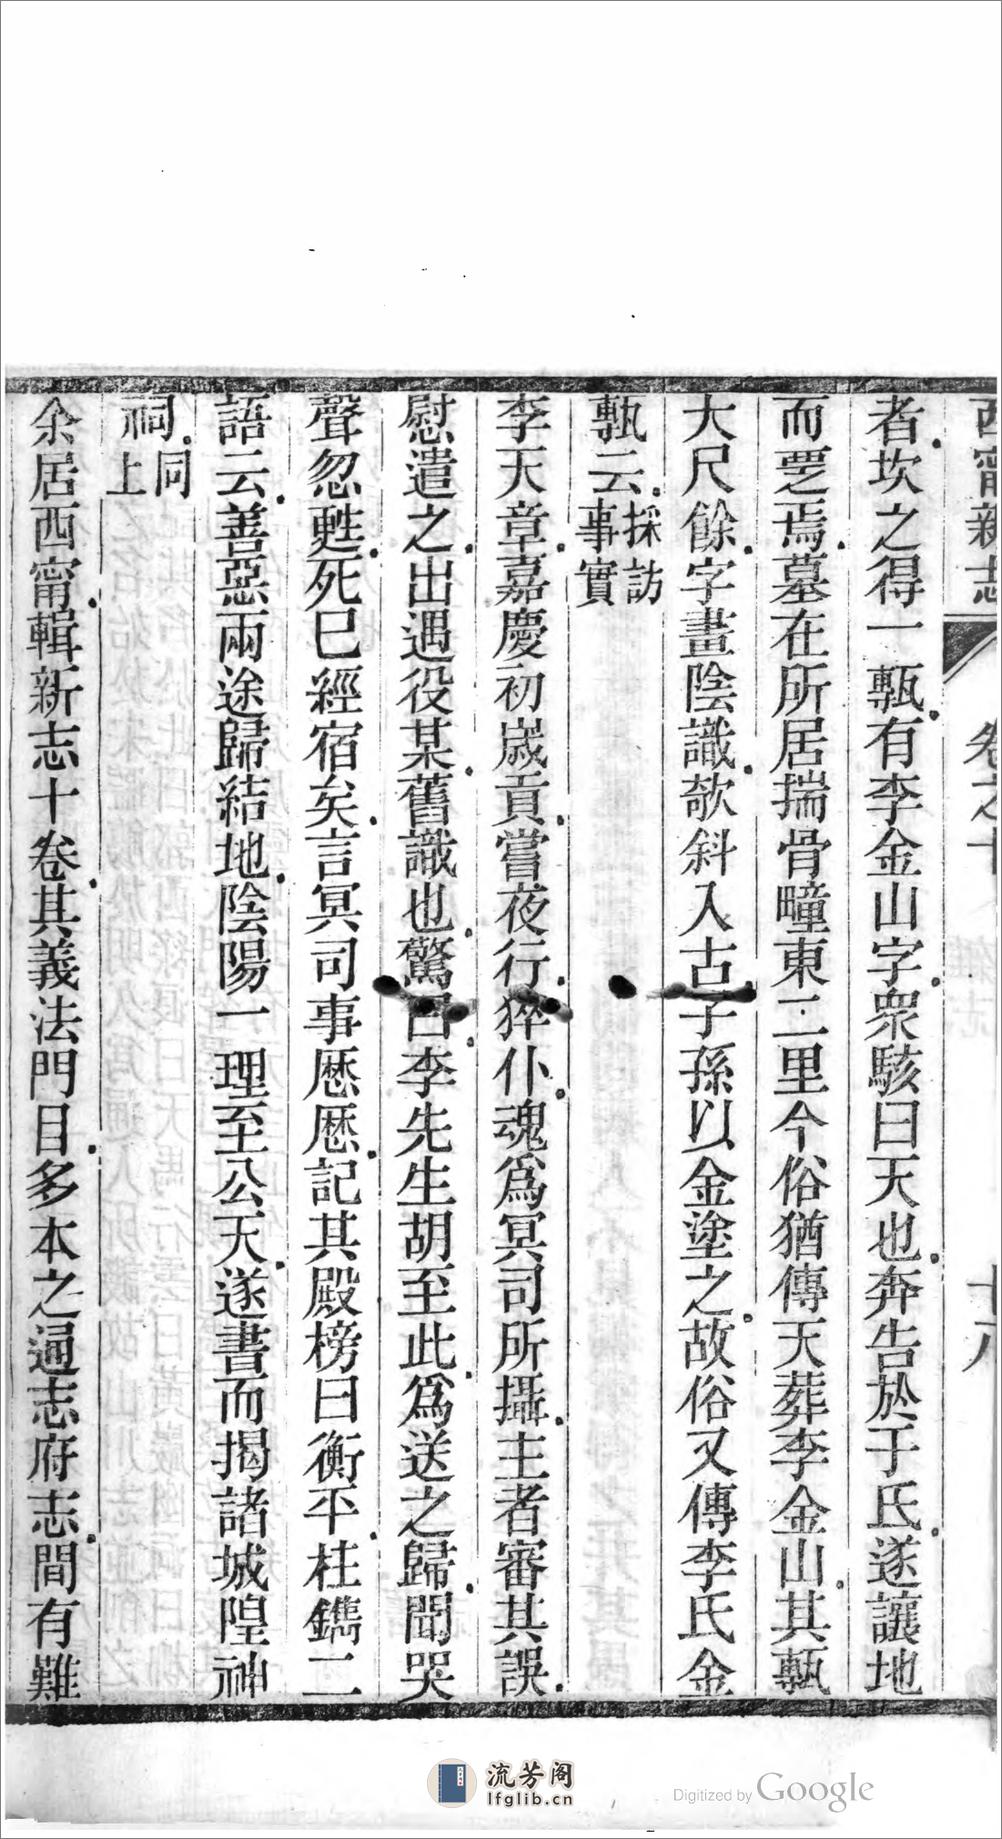 西甯新志 卷之十 雜志 十八
者坎之得一甎有李金山字衆駭曰天也奔告於于氏遂讓地
而窆焉墓在所居揣骨疃東二里今俗猶傳天葬李金山其甎
大尺餘字畫陰識欹斜入古子孫以金塗之故俗又傳李氏金
甎云採訪事實
李天章嘉慶初嵗貢嘗夜行猝仆魂爲冥司所攝主者審其誤
慰遣之出遇役某舊識也驚曰李先生胡至此爲送之歸聞哭
聲忽甦死巳經宿矣言冥司事歷歷記其殿榜曰衡平柱鐫二
語云善惡兩途歸結地陰陽一理至公天遂書而揭諸城隍神
祠同上
余居西甯輯新志十卷其義法門目多本之通志府志間有難
流芳阁
lfglib.cn
Digitized by Google